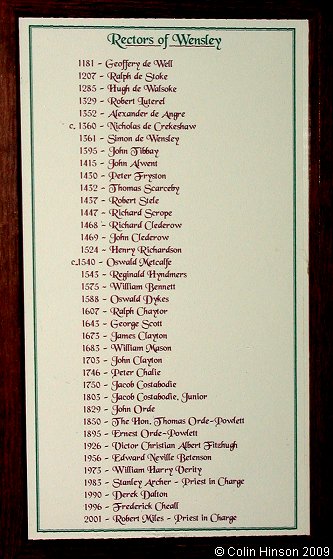 Rectors of Wensley
1181 - Geoffery de Well
1207 - Ralph de Stoke
1285 - Hugh de Walsoke
1329 - Robert Luterel
1352 - Alexander de Angre
c. 1360 - Nicholas de Crekeshaw
1361 - Simon de Wensley
1395 - John Tibbay
1415 - John Alwent
1430 - Peter Fryston
1432 - Thomas Scarceby
1437 - Robert Stele
1447 - Richard Scrope
1468 - Richard Clederow
1469 - John Clederow
1524 - Henry Richardson
c.1540 - Oswald Metcalfe
1543 - Reginald Hyndmers
1575 - William Bennett
1588 - Oswald Dykes
1607 - Ralph Chaytor
1643 - George Scott
1673 - James Clayton
1683 - William Mason
1703 - John Clayton
1746 - Peter Chalie
1750 - Jacob Costabodie
1803 - Jacob Costabodie, Junior
1829 - John Orde
1850 - The Hon. Thomas Orde-Powlett
1895 - Ernest Orde-Powlett
1926 - Victor Christian Albert Fitzhugh
1956 - Edward Neville Betenson
1973 - William Harry Verity
1983 - Stanley Archer - Priest in Charge
1990 - Derek Dalton
1996 - Frederick Cheall
2001 - Robert Miles - Priest in Charge
© Colin Hinson 2009